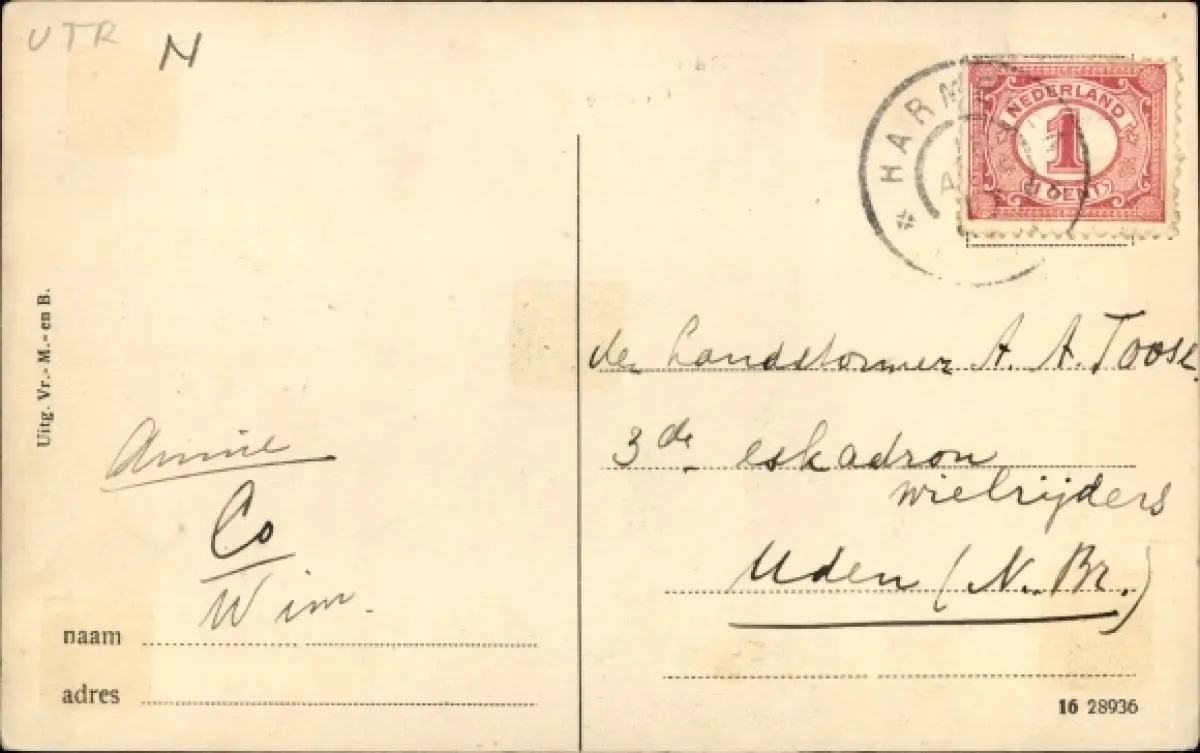 UTR
N
HARM
NEDERLAND
1
(1 CENT)
Uitg. Vr.- M.- en B.
de Landstormer A. A. Toose.
3de eskadron
wielrijders
Uden (N. Br.)
Annie
Co
Wim.
naam
adres
16 28936